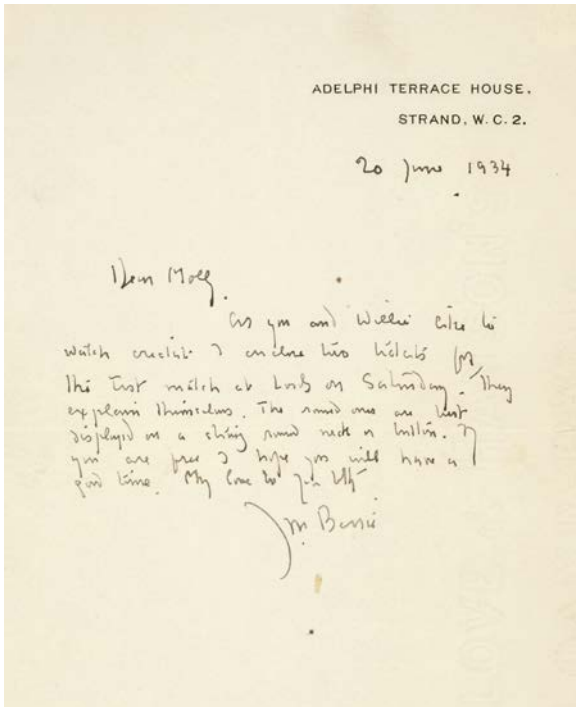 ADELPHI TERRACE HOUSE.
STRAND, W.C. 2.
20 June 1934
Dear Moll,
As you and Willie like to
watch cricket I enclose two tickets for
the Test match at Lords on Saturday. They
explain themselves. The round ones are best
displayed on a string round neck or button. If
you are free I hope you will have a
good time. My love to you both
J M. Barrie